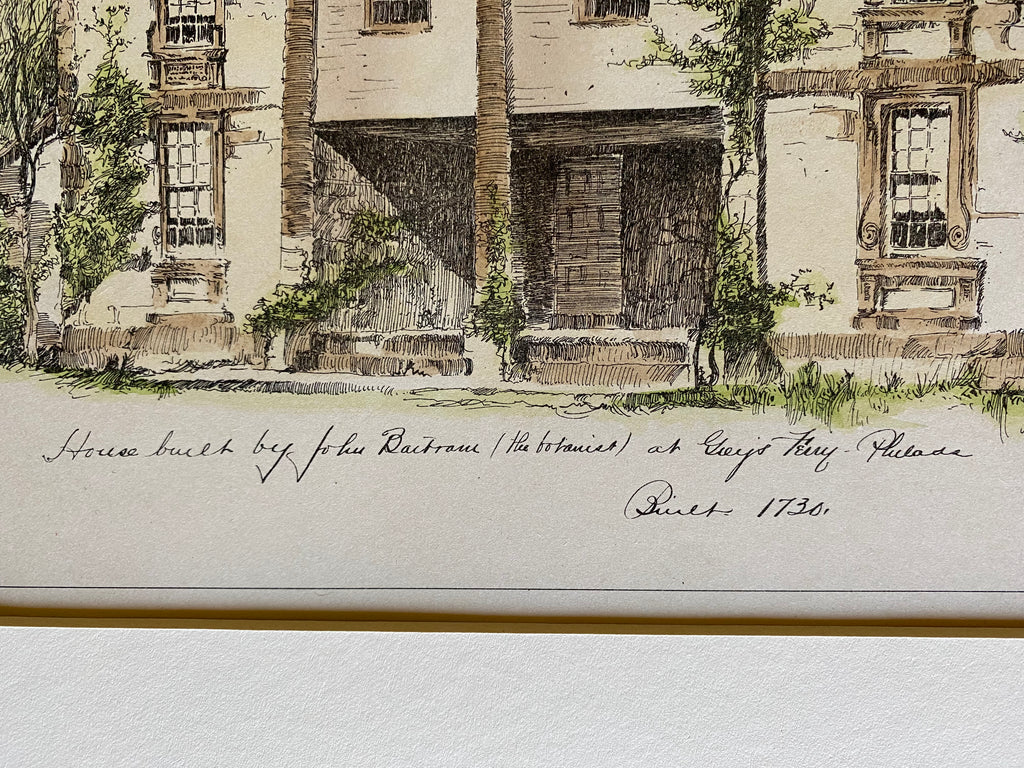 House built by John Bartram (the botanist) at Grays Ferry - Philada
Built 1730.